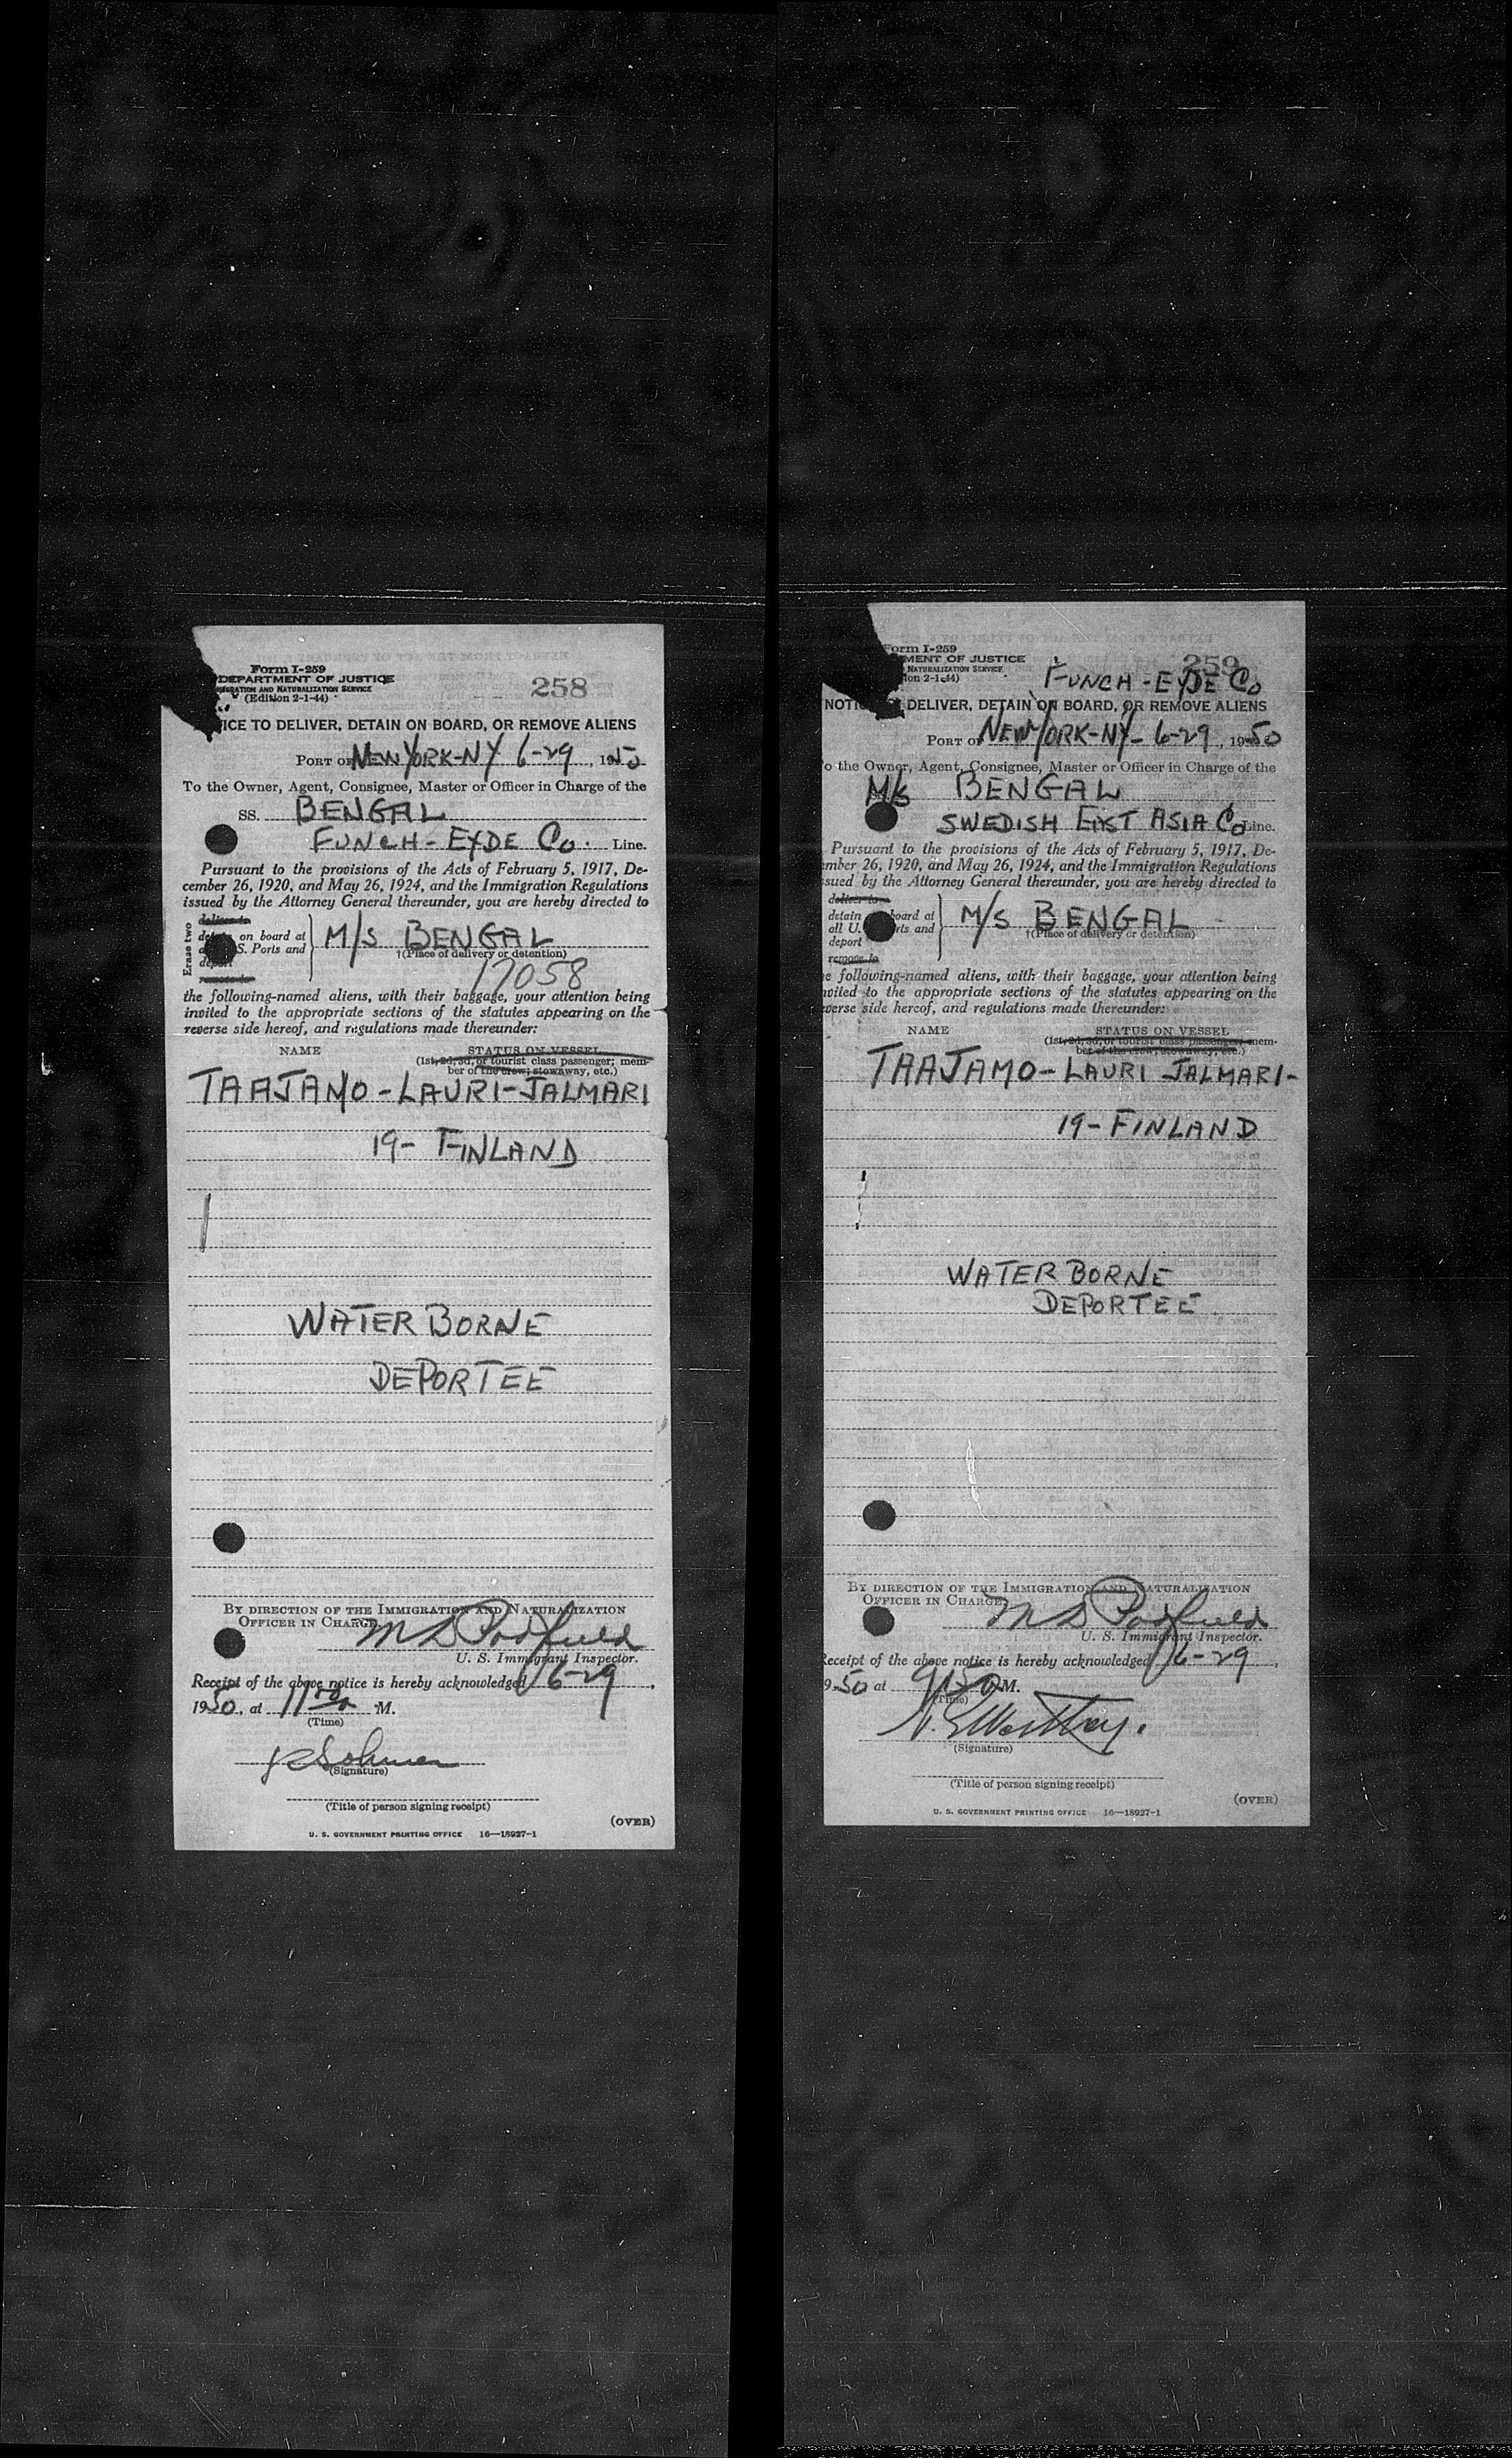 Form I-259
DEPARTMENT OF JUSTICE
IMMIGRATION AND NATURALIZATION SERVICE
(Edition 2-1-44)
258
NOTICE TO DELIVER, DETAIN ON BOARD, OR REMOVE ALIENS
PORT OF NEW YORK-NY 6-29, 1950
To the Owner, Agent, Consignee, Master or Officer in Charge of the
SS. BENGAL
FUNCH-EYDE Co. Line.
Pursuant to the provisions of the Acts of February 5, 1917, De-
cember 26, 1920, and May 26, 1924, and the Immigration Regulations
issued by the Attorney General thereunder, you are hereby directed to
Erase two
deliver to
detain on board at
all U.S. Ports and
deport
remove to
M/S BENGAL
†(Place of delivery or detention)
17058
the following-named aliens, with their baggage, your attention being
invited to the appropriate sections of the statutes appearing on the
reverse side hereof, and regulations made thereunder:
NAME STATUS ON VESSEL
(1st, 2d, 3d, or tourist class passenger; mem-
ber of the crew; stowaway, etc.)
TAAJAMO-LAURI-JALMARI
19- FINLAND
WATER BORNE
DEPORTEE
BY DIRECTION OF THE IMMIGRATION AND NATURALIZATION
OFFICER IN CHARGE,
M D Padfield
U. S. Immigrant Inspector.
Receipt of the above notice is hereby acknowledged 6-29,
1950, at 11 M.
(Time)
(Signature)
(Title of person signing receipt)
(OVER)
U. S. GOVERNMENT PRINTING OFFICE 16—18927-1
Form I-259
MENT OF JUSTICE
NATURALIZATION SERVICE
ion 2-1-44)
259
FUNCH-EYDE Co
NOTI DELIVER, DETAIN ON BOARD, OR REMOVE ALIENS
PORT OF NEW YORK-NY- 6-29, 1950
o the Owner, Agent, Consignee, Master or Officer in Charge of the
M/S BENGAL
SWEDISH EAST ASIA Co Line.
Pursuant to the provisions of the Acts of February 5, 1917, De-
mber 26, 1920, and May 26, 1924, and the Immigration Regulations
sued by the Attorney General thereunder, you are hereby directed to
deliver to
detain board at
all U. rts and
deport
remove to
M/S BENGAL
†(Place of delivery or detention)
e following-named aliens, with their baggage, your attention being
nvited to the appropriate sections of the statutes appearing on the
everse side hereof, and regulations made thereunder:
NAME STATUS ON VESSEL
(1st, 2d, 3d, or tourist class passenger; mem-
ber of the crew; stowaway, etc.)
TAAJAMO-LAURI JALMARI-
19-FINLAND
WATER BORNE
DEPORTEE
BY DIRECTION OF THE IMMIGRATION AND NATURALIZATION
OFFICER IN CHARGE,
M D Padfield
U. S. Immigrant Inspector.
Receipt of the above notice is hereby acknowledged 6-29,
1950 at 915 M.
(Time)
(Signature)
(Title of person signing receipt)
(OVER)
U. S. GOVERNMENT PRINTING OFFICE 16—18927-1